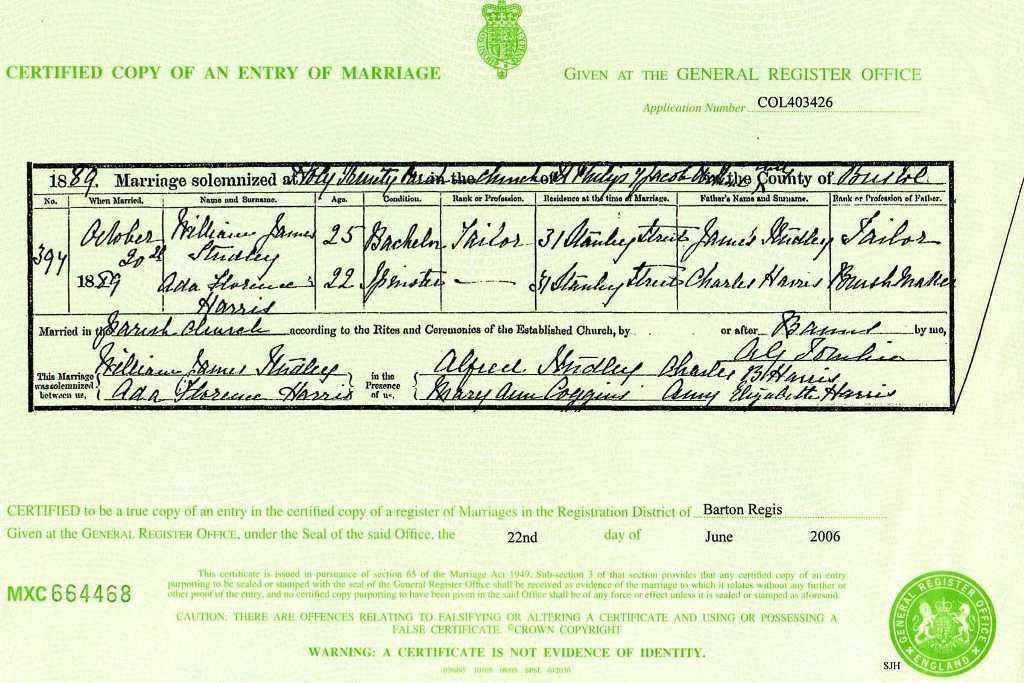 CERTIFIED COPY OF AN ENTRY OF MARRIAGE
GIVEN AT THE GENERAL REGISTER OFFICE
Application Number COL403426
1889. Marriage solemnized at Holy Trinity Parish in the Church of St Philip & Jacob in the County of Bristol
No. When Married. Name and Surname. Age. Condition. Rank or Profession. Residence at the time of Marriage. Father's Name and Surname. Rank or Profession of Father.
394 October 20th 1889 William James Studley 25 Bachelor Tailor 31 Stanley Street James Studley Tailor
Ada Florence Harris 22 Spinster — 31 Stanley Street Charles Harris Brush Maker
Married in the Parish Church according to the Rites and Ceremonies of the Established Church, by or after Banns by me,
This Marriage was solemnized between us, William James Studley in the Presence of us, Alfred Studley Charles B Harris
Ada Florence Harris Mary Ann Coggins Amy Elizabeth Harris
CERTIFIED to be a true copy of an entry in the certified copy of a register of Marriages in the Registration District of Barton Regis
Given at the GENERAL REGISTER OFFICE, under the Seal of the said Office, the 22nd day of June 2006
MXC 664468
This certificate is issued in pursuance of section 65 of the Marriage Act 1949. Sub-section 3 of that section provides that any certified copy of an entry
purporting to be sealed or stamped with the seal of the General Register Office shall be received as evidence of the marriage to which it relates without any further or
other proof of the entry, and no certified copy purporting to have been given in the said Office shall be of any force or effect unless it is sealed or stamped as aforesaid.
CAUTION: THERE ARE OFFENCES RELATING TO FALSIFYING OR ALTERING A CERTIFICATE AND USING OR POSSESSING A
FALSE CERTIFICATE. ©CROWN COPYRIGHT
WARNING: A CERTIFICATE IS NOT EVIDENCE OF IDENTITY.
GENERAL REGISTER OFFICE
ENGLAND
SJH